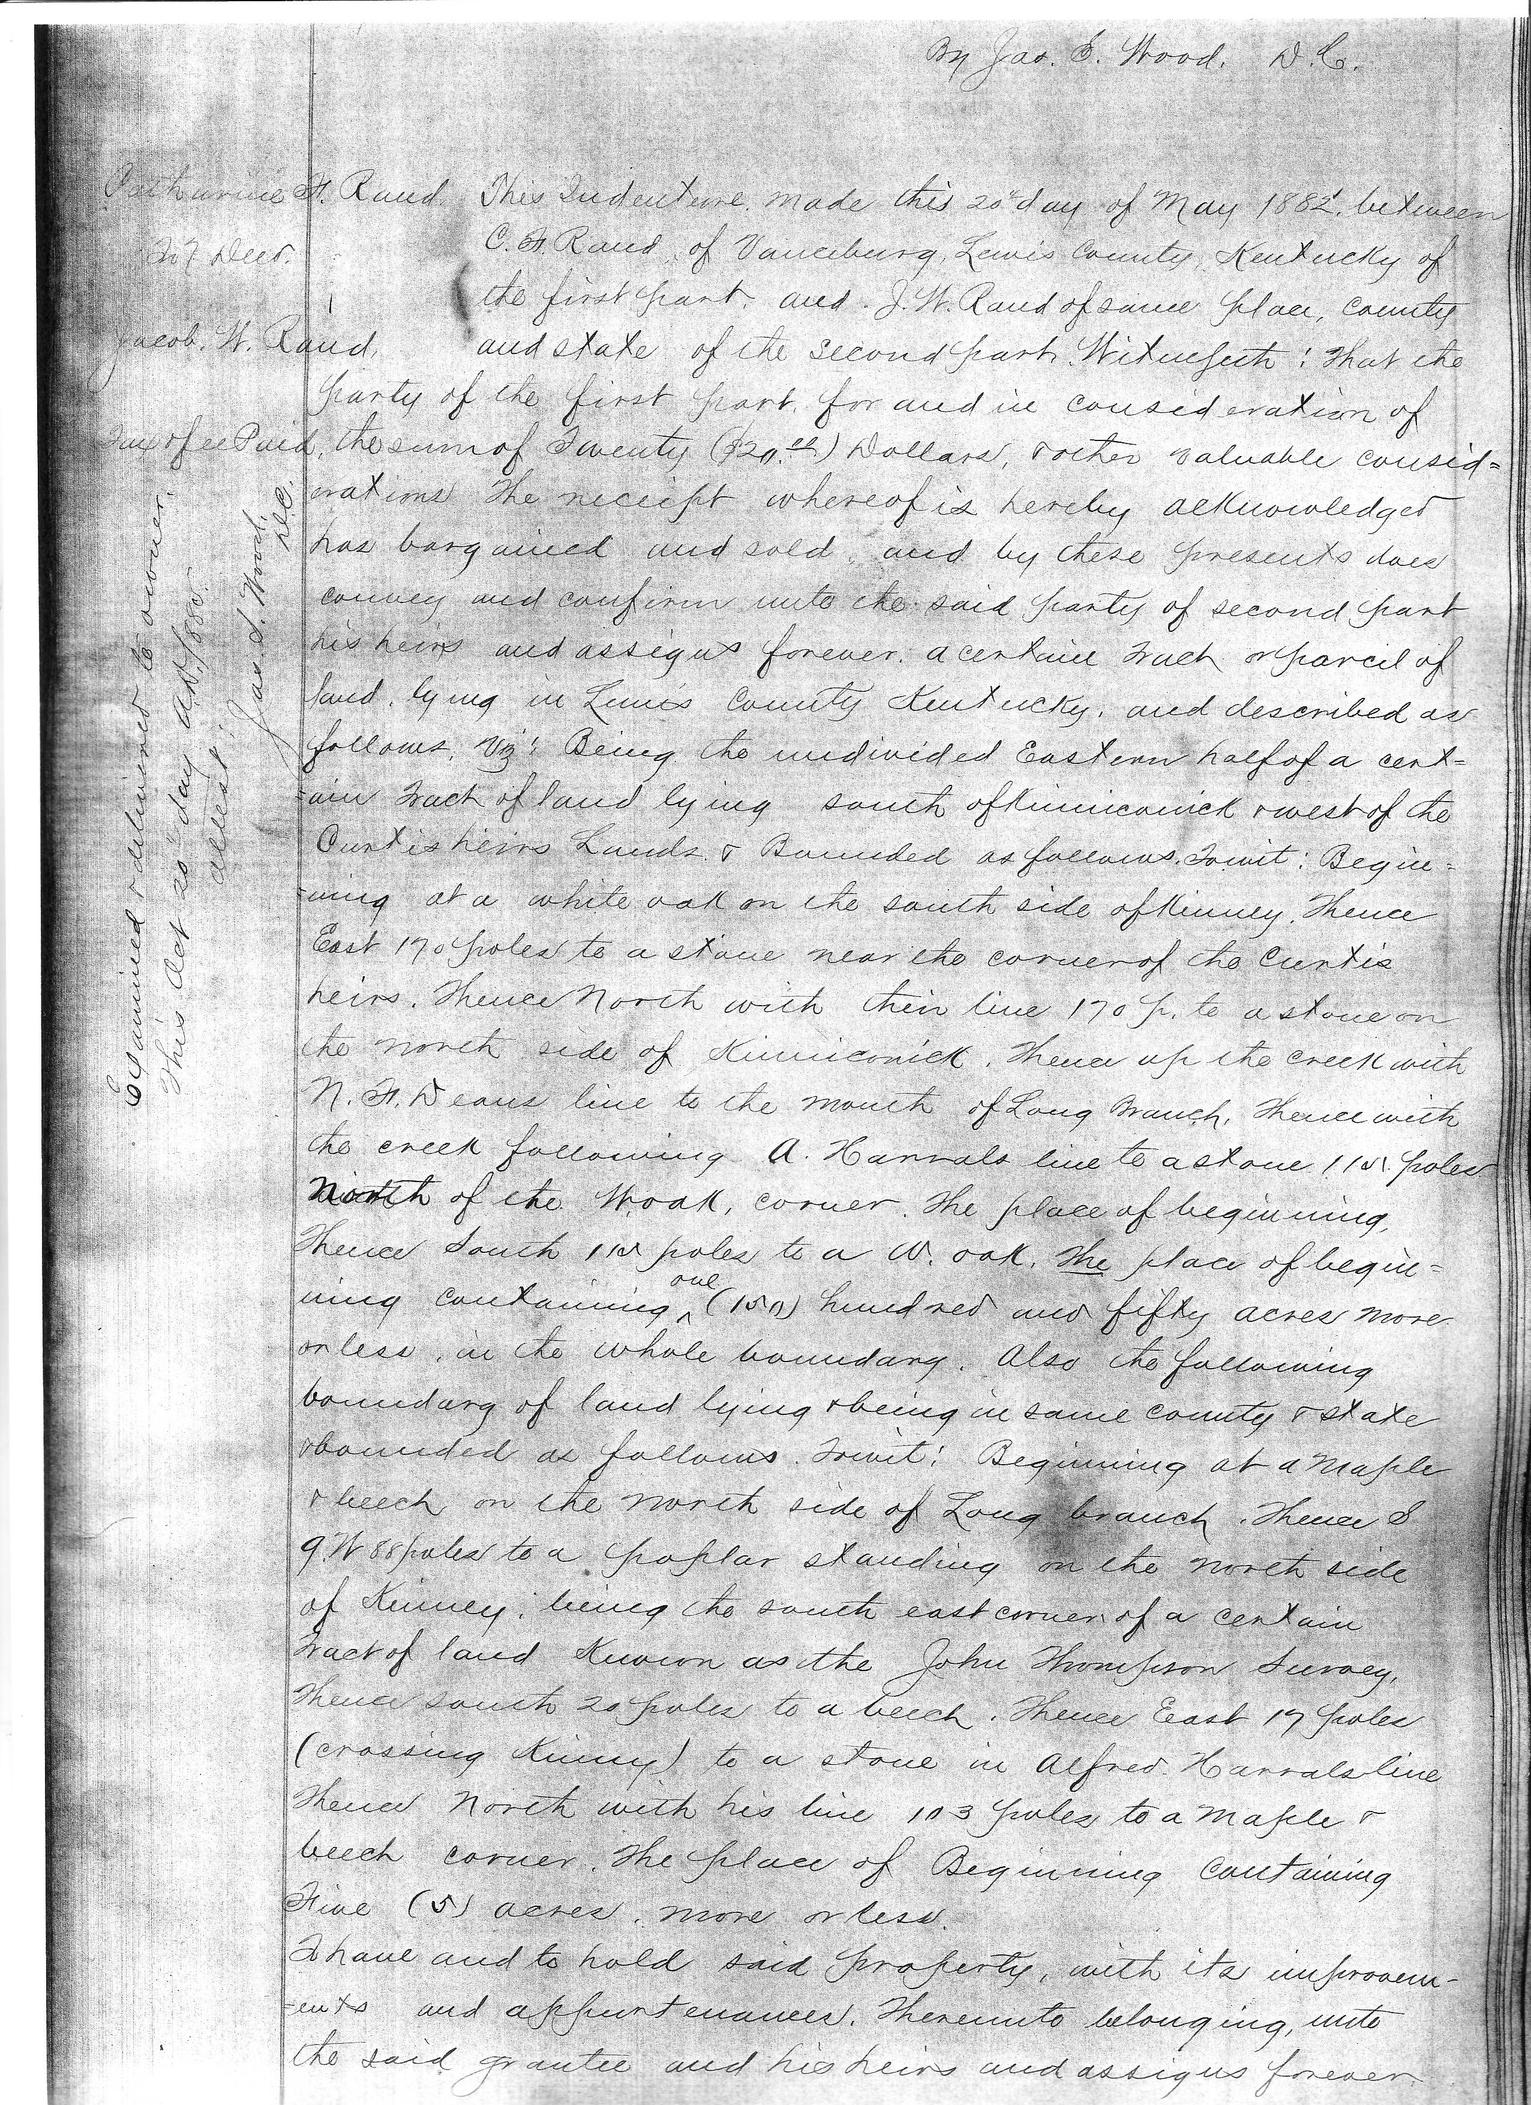 By Jas. S. Wood. D.C.
Catharine F. Rand.
To & Deed.
Jacob. W. Rand.
Tax & fee Paid.
Examined & delivered to owner.
This Oct 20" day A.D. 1885.
attest:
Jas. S. Wood.
D.C.
This Indenture. made this 20" day of May 1882. between
C. F. Rand, of Vanceburg, Lewis County, Kentucky of
the first part. and. J. W. Rand of same place, County
and state of the second part. Witnesseth: That the
party of the first part. for and in consideration of
the sum of Twenty ($20.00) Dollars, & other valuable consid=
erations The receipt whereof is hereby acknowledged
has bargained and sold, and by these presents does
convey and confirm unto the said party of second part
his heirs and assigns forever. a certain Tract or parcel of
land. lying in Lewis County Kentucky, and described as
follows, Viz: Being the undivided Eastern half of a cert=
=ain Tract of land lying south of Kinniconick & west of the
Curtis heirs Lands. & Bounded as follows. Towit: Begin=
=ning at a white oak on the south side of Kinney. Thence
East 170 poles to a stone near the corner of the Curtis
heirs. Thence North with their line 170 p. to a stone on
the north side of Kinniconick. Thence up the creek with
N. F. Deans line to the mouth of Long Branch, Thence with
the creek following A. Harrals line to a stone 115. poles
North of the W. oak, corner. The place of beginning,
Thence South 115 poles to a W. oak. The place of begin=
ning containing one (150) hundred and fifty acres more
or less, in the whole boundary. Also the following
boundary of land lying & being in same county & state
& bounded as follows. Towit: Beginning at a Maple
& beech on the north side of Long branch. Thence S
9. W 88 poles to a poplar standing on the north side
of Kinney. being the south east corner of a certain
Tract of land Known as the John Thompson Survey,
Thence south 20 poles to a beech. Thence East 17 poles
(crossing Kinney) to a stone in Alfred. Harrals line
Thence North with his line 103 poles to a Maple &
beech corner. The place of Beginning containing
Five (5) acres. more or less.
To have and to hold said property, with its improvem-
=ents and appurtenances. Thereunto belonging, unto
the said grantee and his heirs and assigns forever.